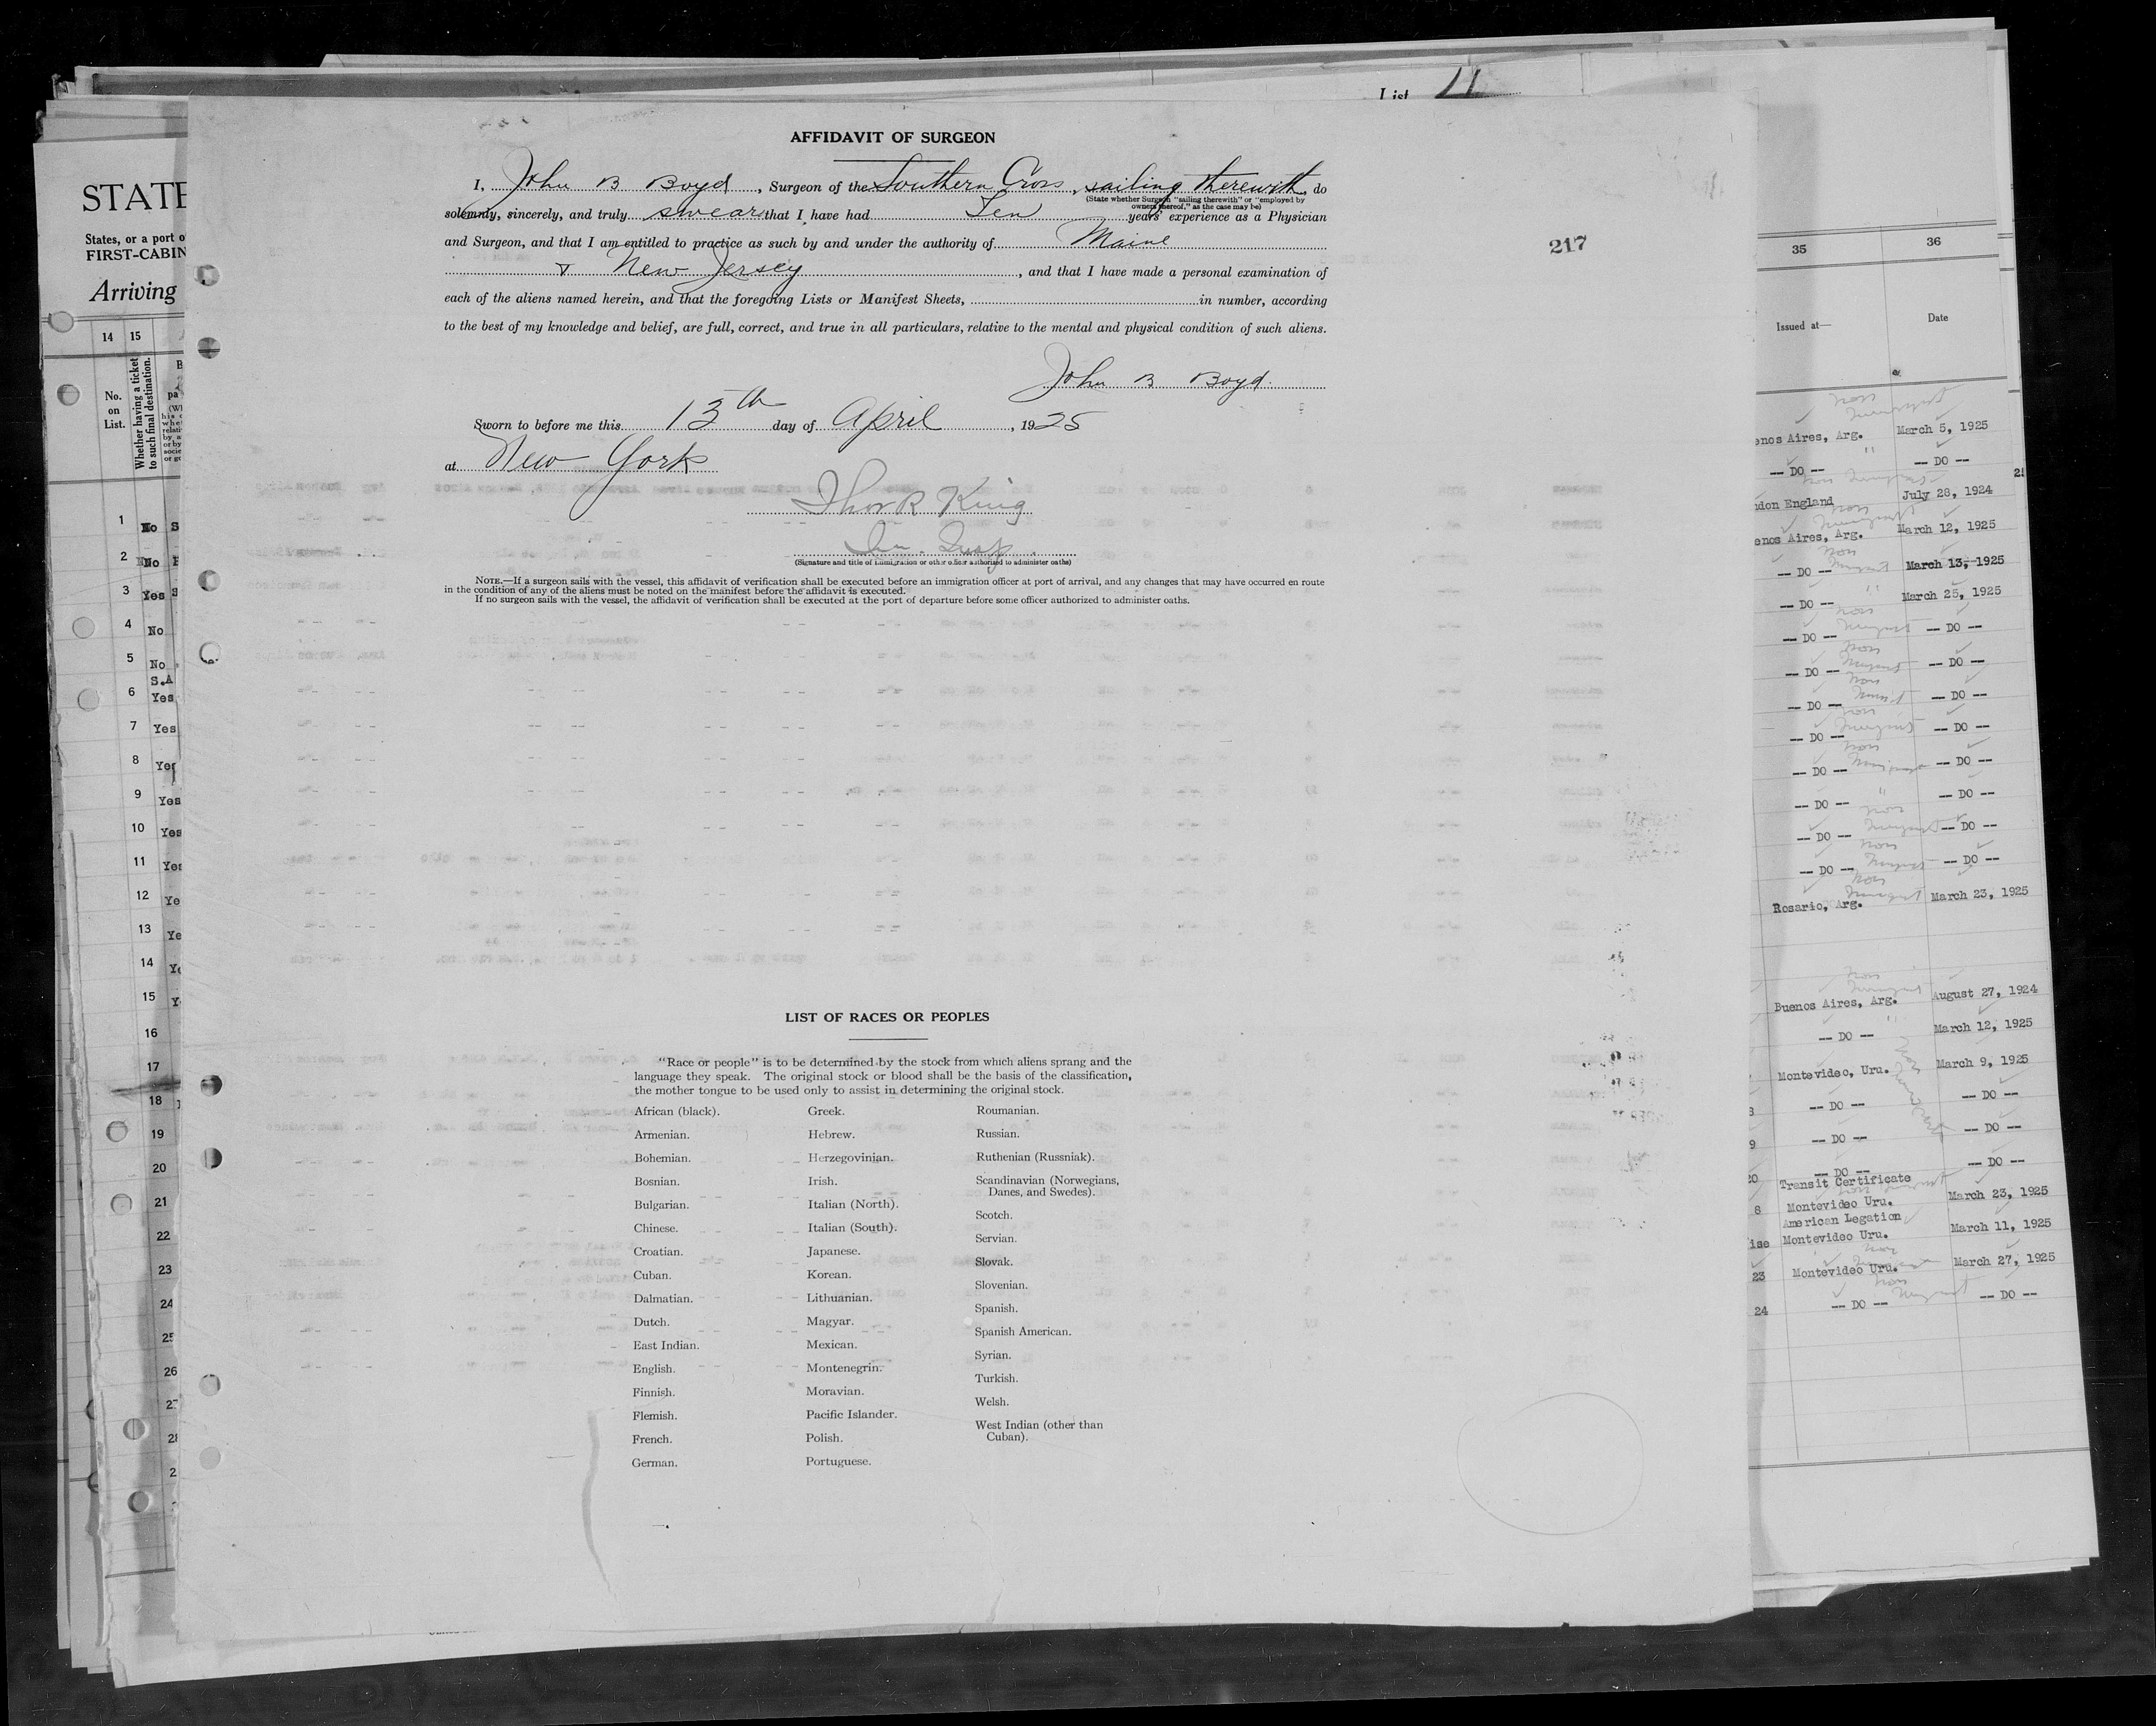 List 11
AFFIDAVIT OF SURGEON
I, John B Boyd, Surgeon of the Southern Cross, sailing therewith, do
(State whether Surgeon "sailing therewith" or "employed by
owners thereof," as the case may be)
solemnly, sincerely, and truly swear that I have had Ten years' experience as a Physician
and Surgeon, and that I am entitled to practice as such by and under the authority of Maine
& New Jersey, and that I have made a personal examination of
each of the aliens named herein, and that the foregoing Lists or Manifest Sheets, in number, according
to the best of my knowledge and belief, are full, correct, and true in all particulars, relative to the mental and physical condition of such aliens.
John B Boyd.
Sworn to before me this 13th day of April, 1925
at New York
Thor R King
Im. Insp.
(Signature and title of immigration or other officer authorized to administer oaths)
NOTE.—If a surgeon sails with the vessel, this affidavit of verification shall be executed before an immigration officer at port of arrival, and any changes that may have occurred en route
in the condition of any of the aliens must be noted on the manifest before the affidavit is executed.
If no surgeon sails with the vessel, the affidavit of verification shall be executed at the port of departure before some officer authorized to administer oaths.
217
LIST OF RACES OR PEOPLES
"Race or people" is to be determined by the stock from which aliens sprang and the
language they speak. The original stock or blood shall be the basis of the classification,
the mother tongue to be used only to assist in determining the original stock.
African (black).
Armenian.
Bohemian.
Bosnian.
Bulgarian.
Chinese.
Croatian.
Cuban.
Dalmatian.
Dutch.
East Indian.
English.
Finnish.
Flemish.
French.
German.
Greek.
Hebrew.
Herzegovinian.
Irish.
Italian (North).
Italian (South).
Japanese.
Korean.
Lithuanian.
Magyar.
Mexican.
Montenegrin.
Moravian.
Pacific Islander.
Polish.
Portuguese.
Roumanian.
Russian.
Ruthenian (Russniak).
Scandinavian (Norwegians,
Danes, and Swedes).
Scotch.
Servian.
Slovak.
Slovenian.
Spanish.
Spanish American.
Syrian.
Turkish.
Welsh.
West Indian (other than
Cuban).
STATE
States, or a port o
FIRST-CABIN
Arriving
14 15
No.
on
List.
Whether having a ticket
to such final destination.
1 No S
2 No
3 Yes S
4 No
5 No
S.A
6 Yes
7 Yes
8 Yes
9 Yes
10 Yes
11 Yes
12 Ye
13 Ye
14 Ye
15 Y
16
17
18
19
20
21
22
23
24
25
26
35 36
Issued at— Date
enos Aires, Arg. March 5, 1925
-- DO -- -- DO --
ndon England July 28, 1924
enos Aires, Arg. March 12, 1925
-- DO -- March 13, 1925
-- DO -- March 25, 1925
-- DO -- -- DO --
-- DO -- -- DO --
-- DO -- -- DO --
-- DO -- -- DO --
-- DO -- -- DO --
-- DO -- -- DO --
-- DO -- -- DO --
-- DO -- -- DO --
Rosario, Arg. March 23, 1925
Buenos Aires, Arg. August 27, 1924
-- DO -- March 12, 1925
Montevideo, Uru. March 9, 1925
-- DO -- -- DO --
-- DO -- -- DO --
-- DO -- -- DO --
Transit Certificate
Montevideo Uru. March 23, 1925
American Legation
Montevideo Uru. March 11, 1925
23 Montevideo Uru. March 27, 1925
24 -- DO -- -- DO --